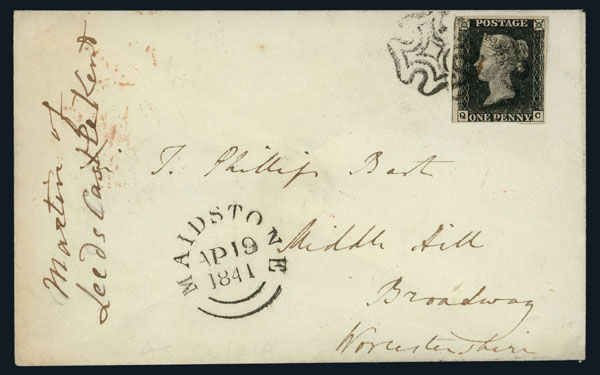 POSTAGE
Q C
ONE PENNY
T. Phillipps Bart
Middle Hill
Broadway
Worcestershire
MAIDSTONE
AP 19
1841
Martin of
Leeds Castle Kent